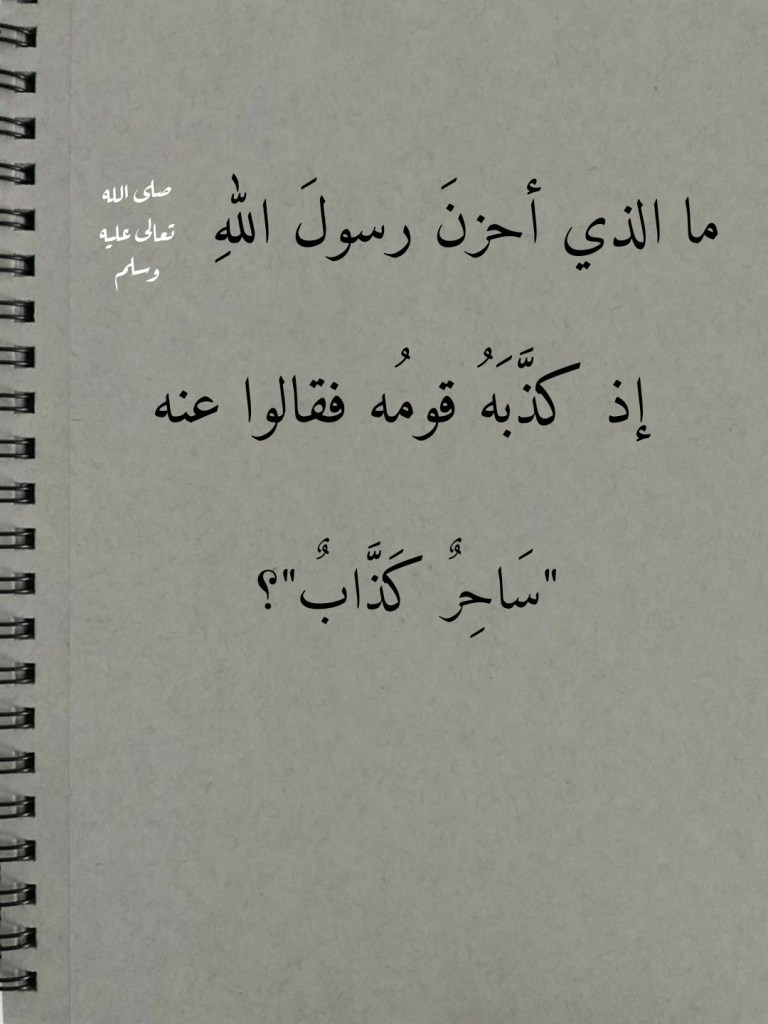 ما الذي أحزنَ رسولَ اللهِ
صلى الله
تعالى عليه
وسلم
إذ كذَّبَهُ قومُه فقالوا عنه
"سَاحِرٌ كَذَّابٌ"؟